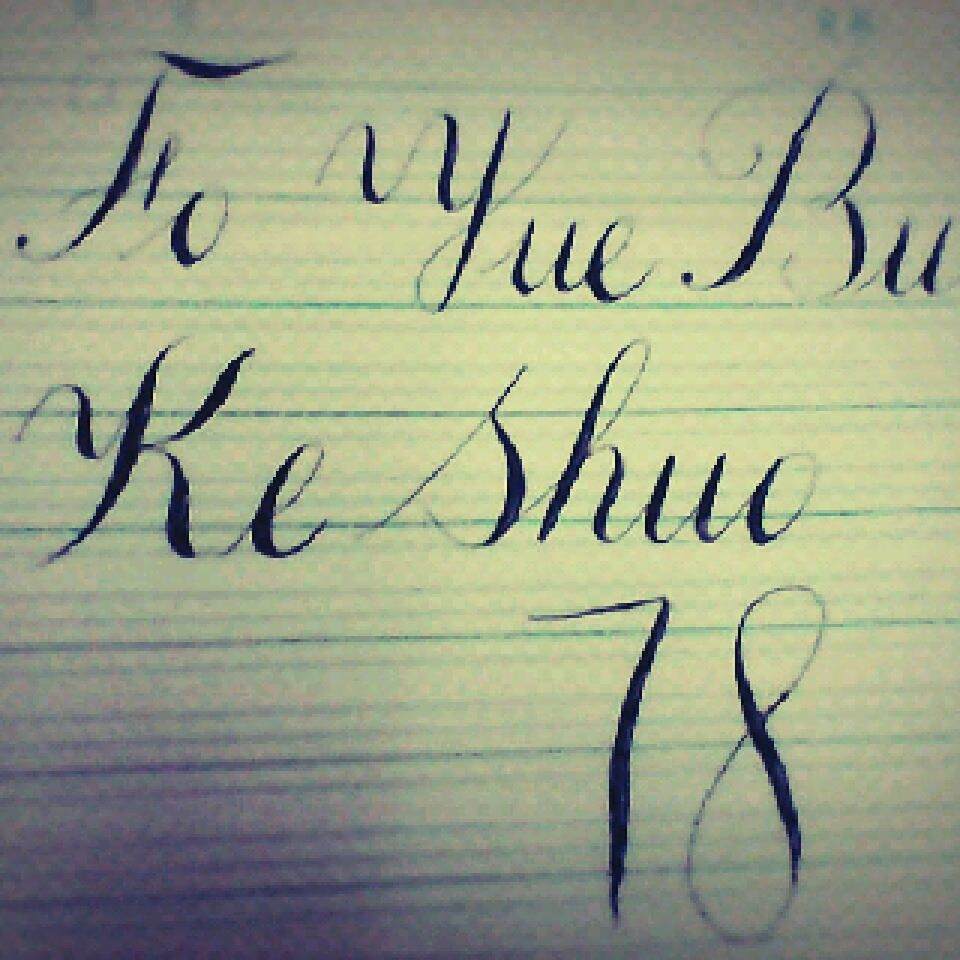 Fo Yue Bu
Ke Shuo
78